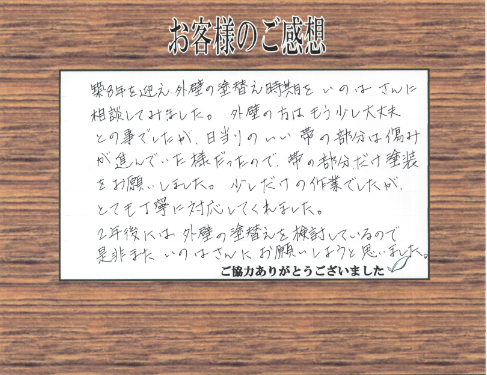 お客様のご感想
築8年を迎え、外壁の塗替え時期を いのは さんに
相談してみました。 外壁の方は もう少し大丈夫
との事でしたが、日当りのいい 帯の部分は傷み
が進んでいた様だったので、帯の部分だけ塗装
をお願いしました。 少しだけの作業でしたが、
とても丁寧に対応してくれました。
2年後には 外壁の塗替えを検討しているので
是非また いのはさんに お願いしようと思いました。
ご協力ありがとうございました